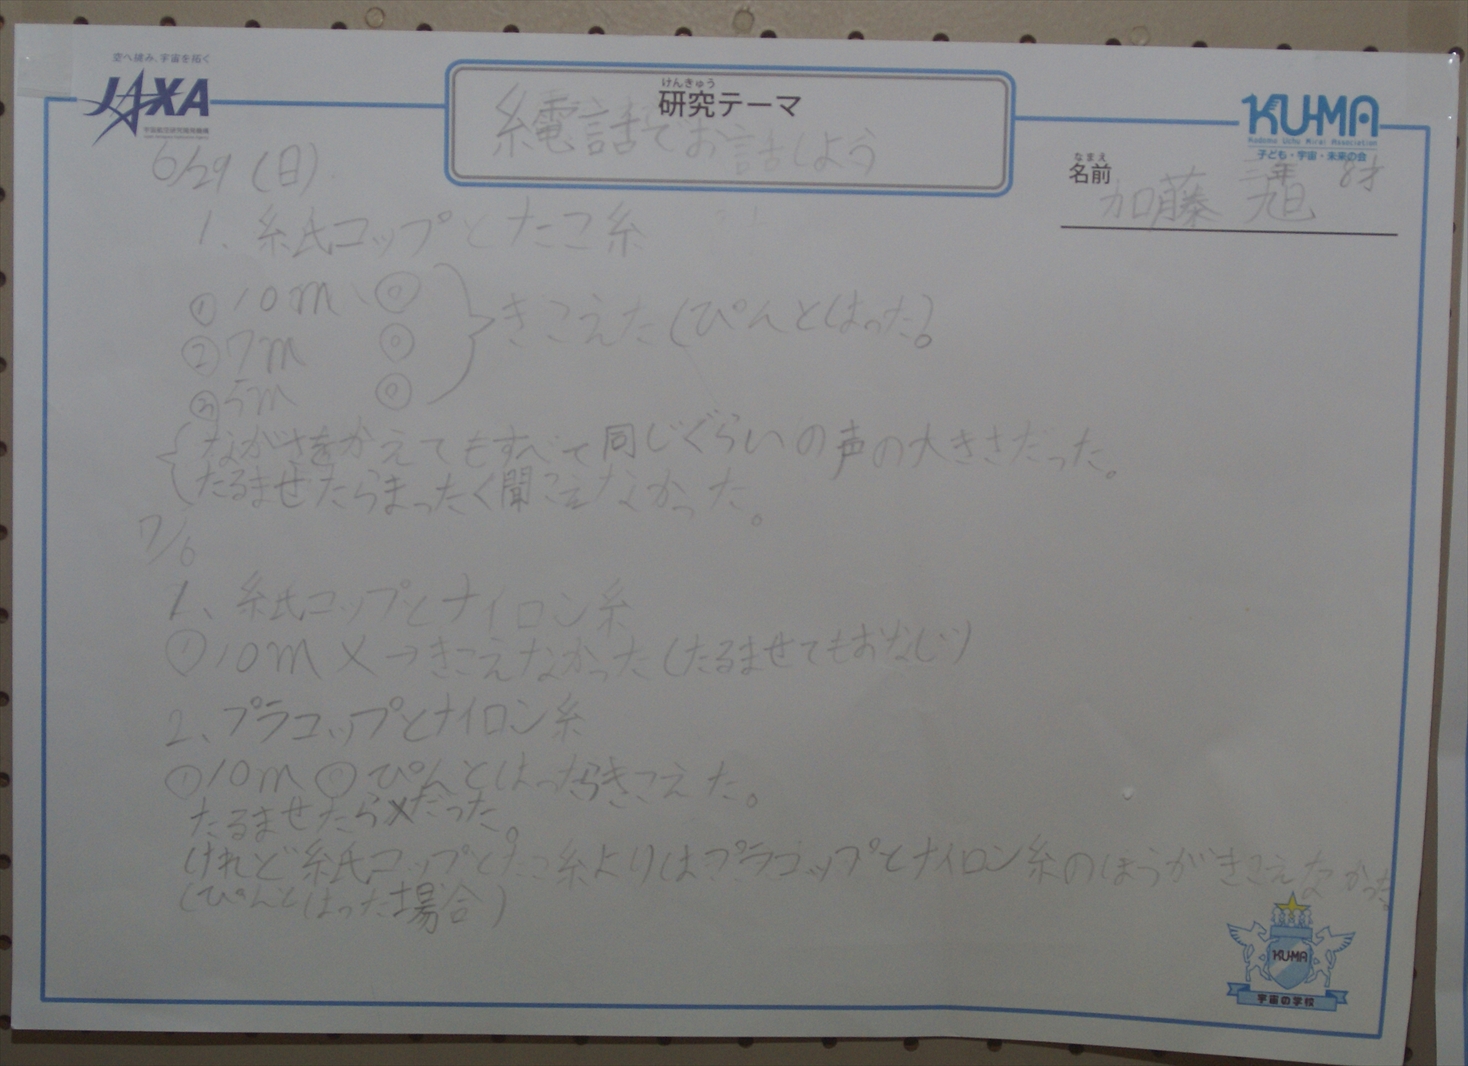 空へ挑み、宇宙を拓く
JAXA
宇宙航空研究開発機構
けんきゅう
研究テーマ
糸電話でお話しよう
KU-MA
Kodomo Uchu Mirai Association
子ども・宇宙・未来の会
なまえ
名前
二年 8才
加藤
6/29(日)
1、紙コップとたこ糸
① 10m ◎
② 7m ◎
③ 5m ◎
きこえた(ぴんとはった)。
ながさをかえてもすべて同じぐらいの声の大きさだった。
たるませたらまったく聞こえなかった。
7/6
1、紙コップとナイロン糸
① 10m ×→きこえなかった(たるませてもおなじ)
2、プラコップとナイロン糸
① 10m ◎ ぴんとはったらきこえた。
たるませたら×だった。
けれど紙コップとたこ糸よりはプラコップとナイロン糸のほうがきこえなかった。
(ぴんとはった場合)
KU-MA
宇宙の学校